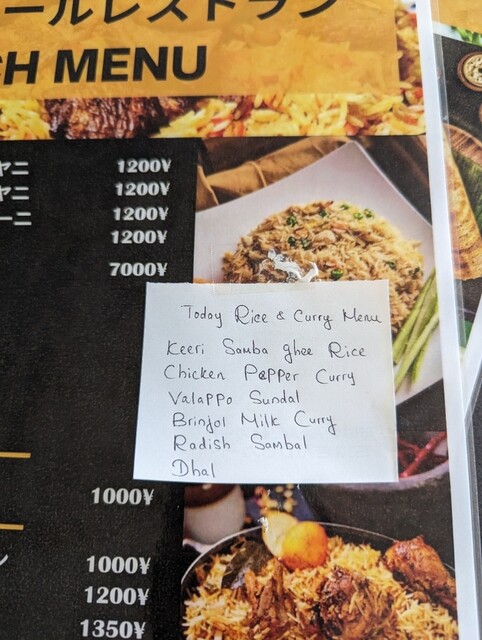 ールレストラン
CH MENU
ヤニ 1200¥
ヤニ 1200¥
ーニ 1200¥
1200¥
7000¥
Today Rice & Curry Menu
Keeri Samba ghee Rice
Chicken Pepper Curry
Valappo Sundal
Brinjol Milk Curry
Radish Sambal
Dhal
1000¥
ン 1000¥
1200¥
1350¥